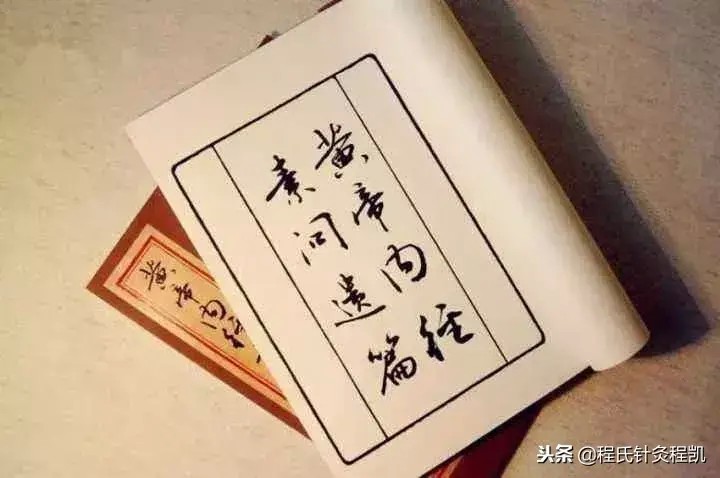 黄帝内经
素问遗篇
黄帝内经
头条 @程氏针灸程凯